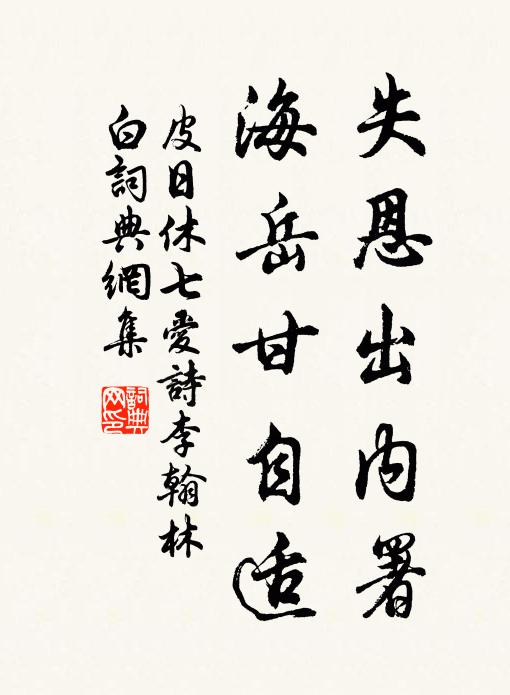 失恩出内署
海岳甘自适
皮日休七愛詩李翰林
白詞典網集
詞典
网印